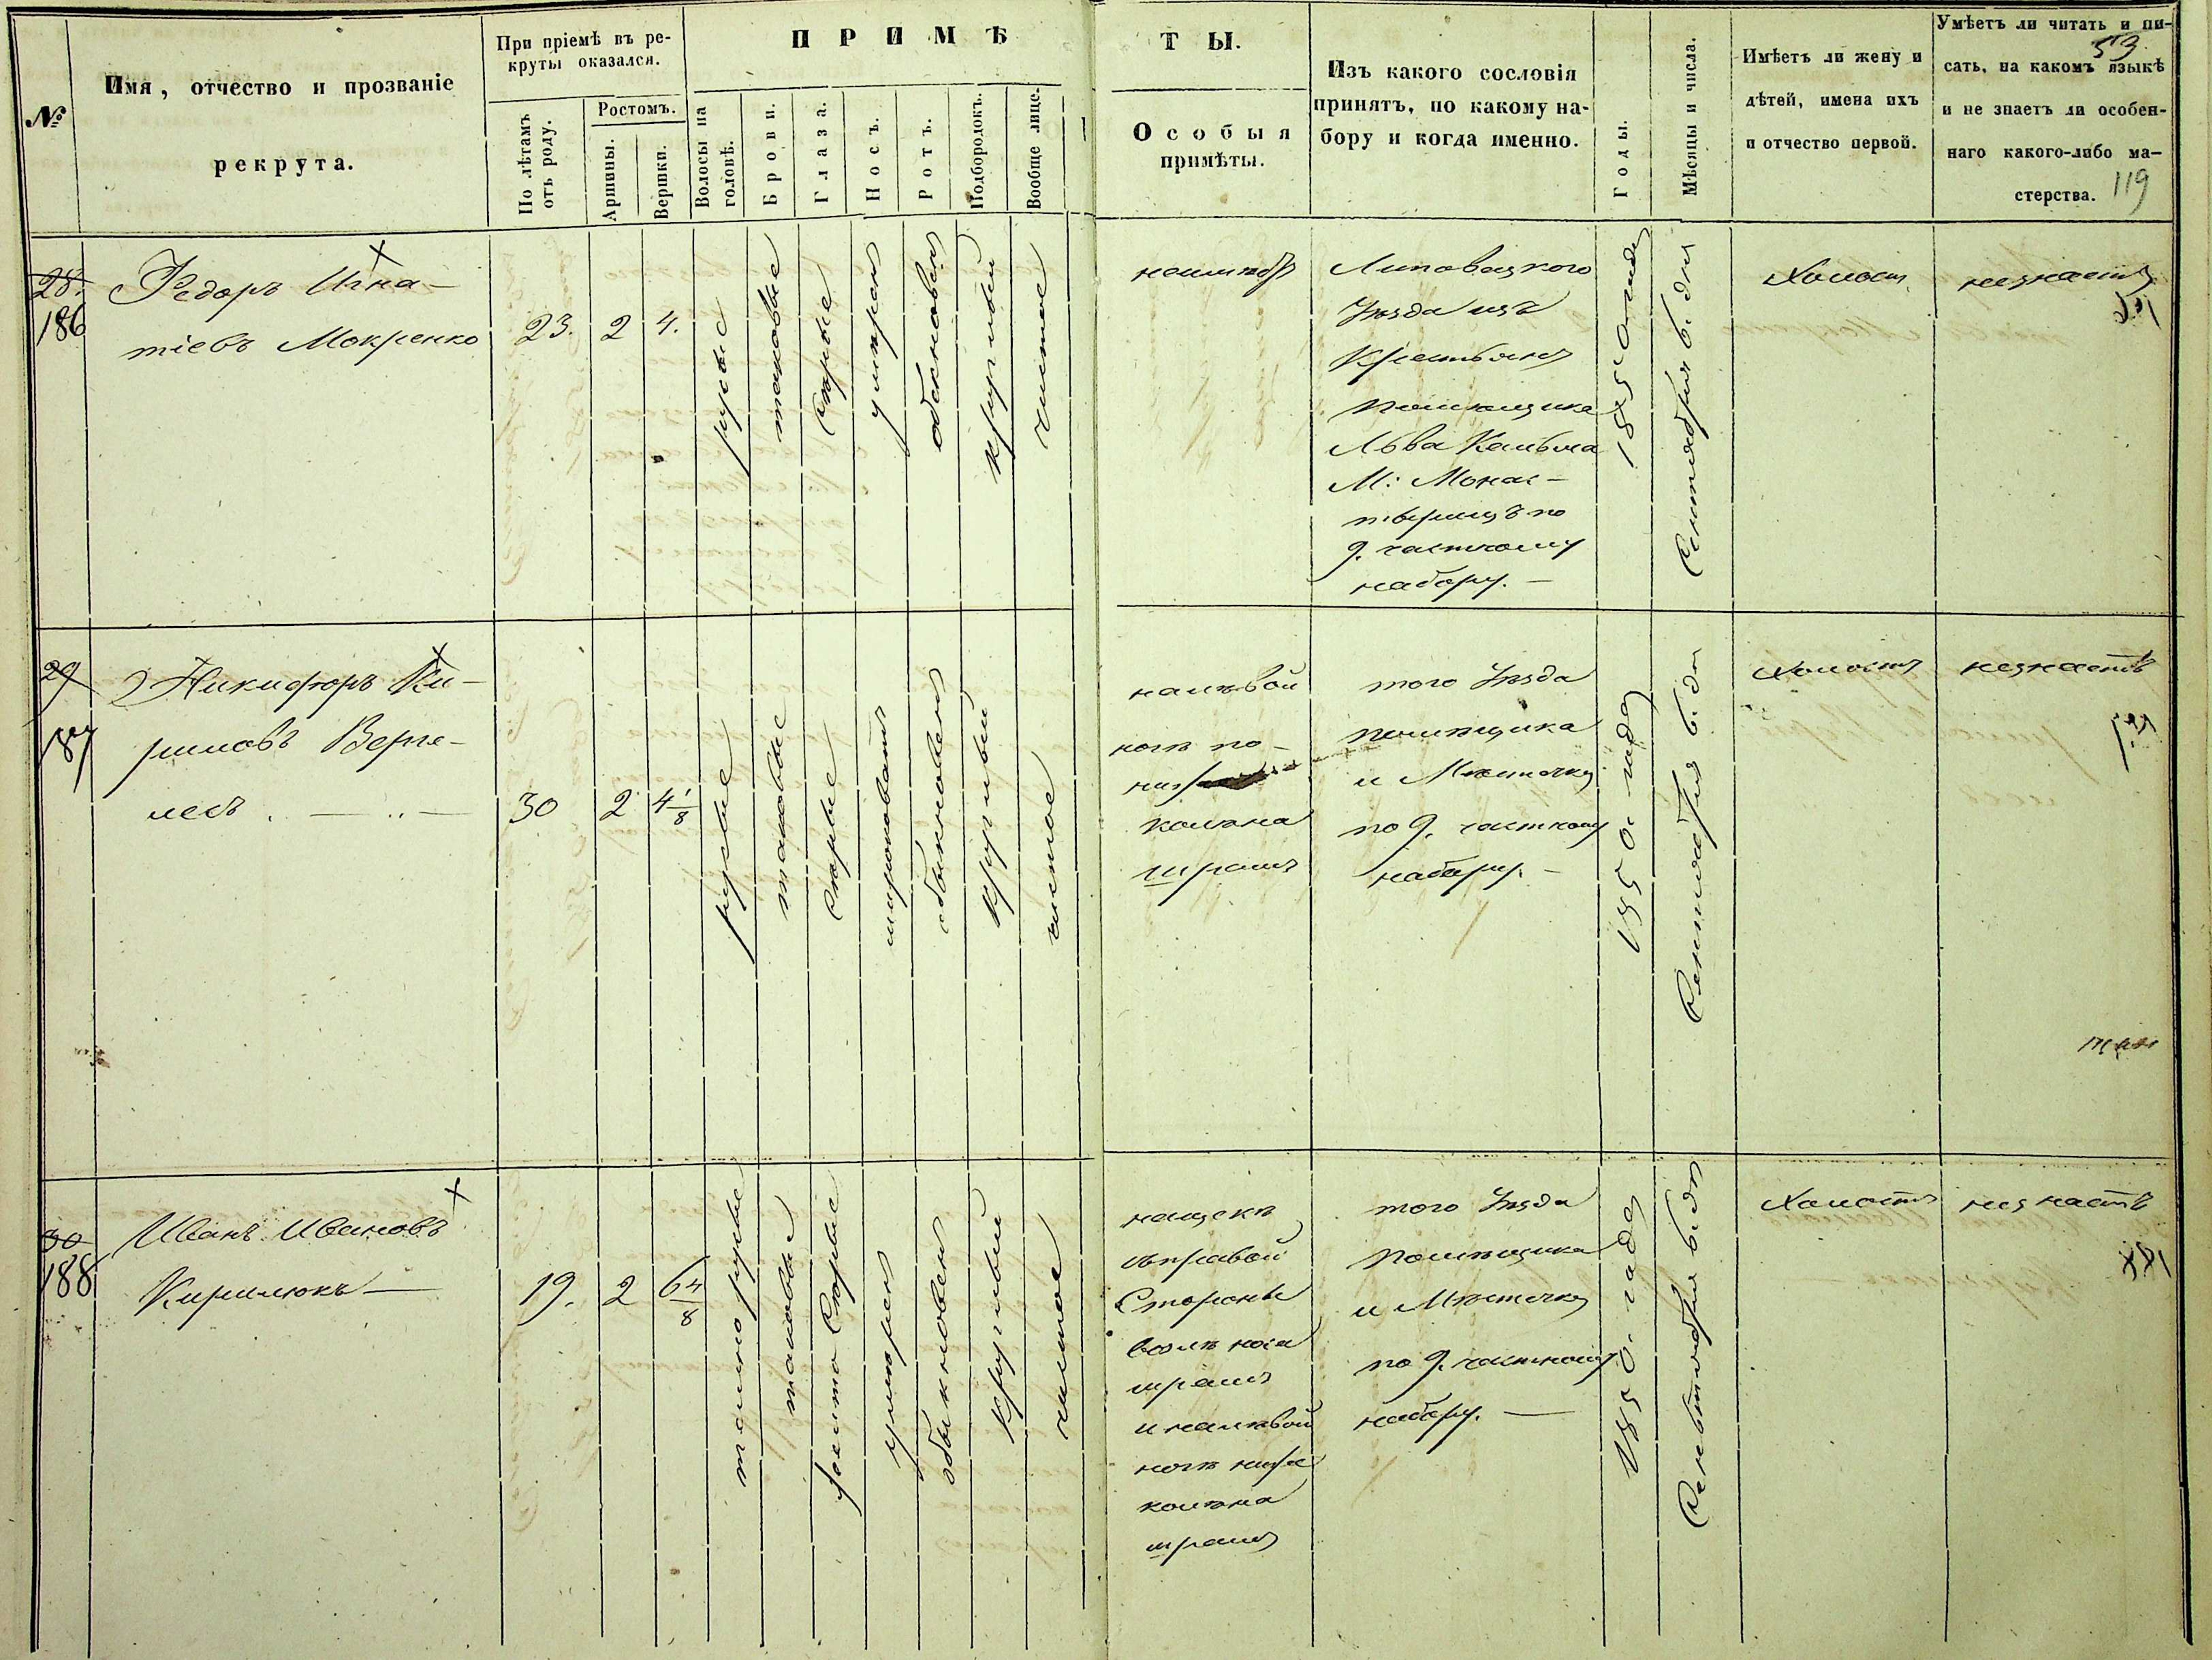 №
Имя, отчество и прозваніе
рекрута.
При пріемѣ въ ре-
круты оказался.
По лѣтамъ
отъ роду.
Ростомъ.
Аршины.
Вершки.
ПРИМѢ
Волосы на
головѣ.
Брови.
Глаза.
Носъ.
Ротъ.
Подбородокъ.
Вообще лице.
ТЫ.
Особыя
примѣты.
Изъ какого сословія
принятъ, по какому на-
бору и когда именно.
Годы.
Мѣсяцы и числа.
Имѣетъ ли жену и
дѣтей, имена ихъ
и отчество первой.
Умѣетъ ли читать и пи-
53.
сать, на какомъ языкѣ
и не знаетъ ли особен-
наго какого-либо ма-
стерства.
119
28.
186
Федоръ Игна-
тіевъ Мокренко
23.
2
4.
русые
таковые
Сѣрые
умѣрен
обыкновен
круглый
чистое
неимѣетъ
Липовецкого
Уѣзда изъ
Крестьянъ
помѣщика
Льва
М: Монас-
тырищъ по
9. частному
набору. —
1850 года
Сентября 6. дня
Холостъ
незнаетъ
29
187
Никифоръ Ки-
риловъ Верге-
лесъ . — .. —
30
2
4 1/8
русые
таковые
сѣрые
широковатъ
обыкновенъ
круглый
чистое
налѣвой
ногѣ по-
ниже
колѣна
шрамъ
того Уѣзда
помѣщика
и Мѣстечка
по 9. частному
набору. —
1850. года
Сентября 6. дн
Холостъ
незнаетъ
30
188
Иванъ Ивановъ
Кирилюкъ —
19.
2
6 4/8
темно русые
таковые
желто Сѣрые
умѣрен
обыкновен
круглый
чистое
нащекѣ
съправой
Стороны
возлѣ носа
шрамъ
и налѣвой
ногѣ ниже
колѣна
шрамъ
того Уѣзда
Помѣщика
и Мѣстечка
по 9. частному
набору. —
1850. года
Сентября 6. дня
Холостъ
незнаетъ